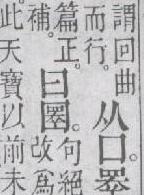 謂回曲
而行。
从囗。睪
篇正。
補。
曰圛。
句絕
故爲
此天寶以前未